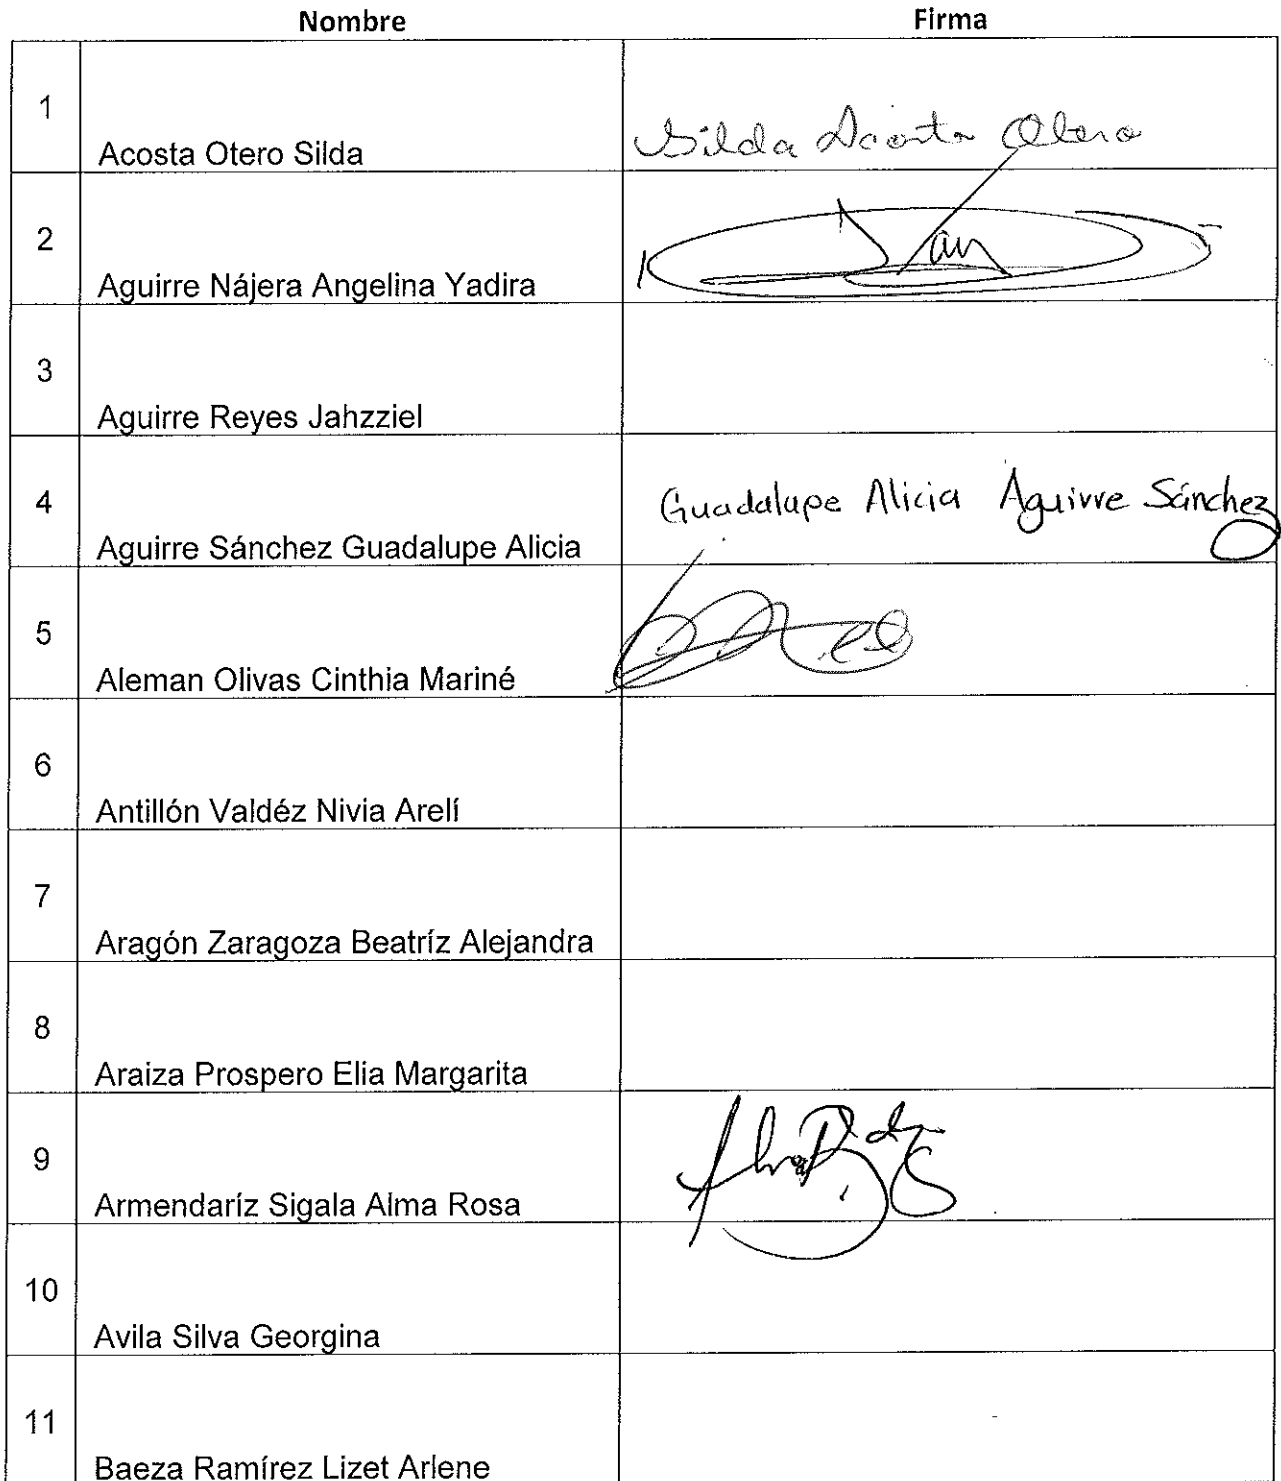 Nombre Firma
1 Acosta Otero Silda Silda Acosta Otero
2 Aguirre Nájera Angelina Yadira
3 Aguirre Reyes Jahzziel
4 Aguirre Sánchez Guadalupe Alicia Guadalupe Alicia Aguirre Sánchez
5 Aleman Olivas Cinthia Mariné
6 Antillón Valdéz Nivia Arelí
7 Aragón Zaragoza Beatríz Alejandra
8 Araiza Prospero Elia Margarita
9 Armendaríz Sigala Alma Rosa
10 Avila Silva Georgina
11 Baeza Ramírez Lizet Arlene